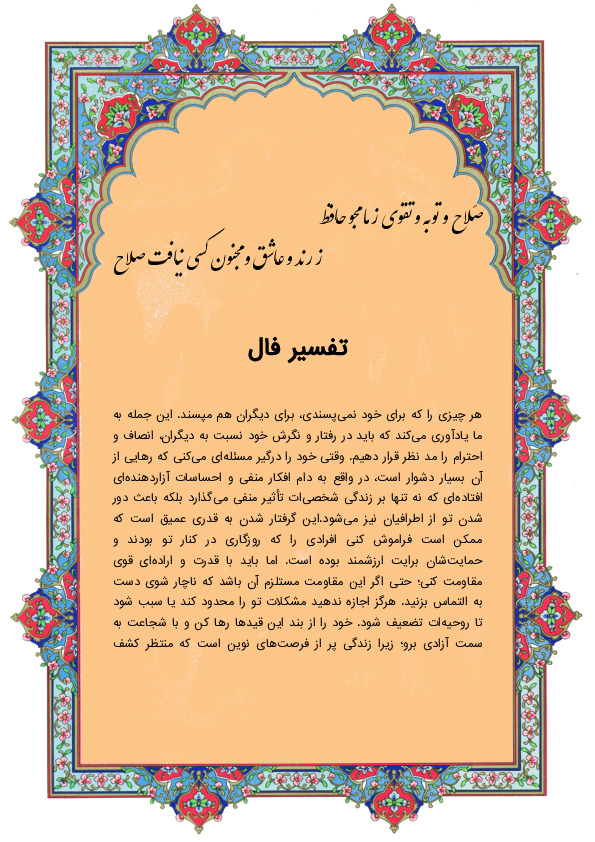 صلاح و توبه و تقوی ز ما مجو حافظ
ز رند و عاشق و مجنون کسی نیافت صلاح
تفسیر فال
هر چیزی را که برای خود نمی‌پسندی، برای دیگران هم مپسند. این جمله به
ما یادآوری می‌کند که باید در رفتار و نگرش خود نسبت به دیگران، انصاف و
احترام را مد نظر قرار دهیم. وقتی خود را درگیر مسئله‌ای می‌کنی که رهایی از
آن بسیار دشوار است، در واقع به دام افکار منفی و احساسات آزاردهنده‌ای
افتاده‌ای که نه تنها بر زندگی شخصی‌ات تأثیر منفی می‌گذارد بلکه باعث دور
شدن تو از اطرافیان نیز می‌شود.این گرفتار شدن به قدری عمیق است که
ممکن است فراموش کنی افرادی را که روزگاری در کنار تو بودند و
حمایت‌شان برایت ارزشمند بوده است. اما باید با قدرت و اراده‌ای قوی
مقاومت کنی؛ حتی اگر این مقاومت مستلزم آن باشد که ناچار شوی دست
به التماس بزنید. هرگز اجازه ندهید مشکلات تو را محدود کند یا سبب شود
تا روحیه‌ات تضعیف شود. خود را از بند این قیدها رها کن و با شجاعت به
سمت آزادی برو؛ زیرا زندگی پر از فرصت‌های نوین است که منتظر کشف